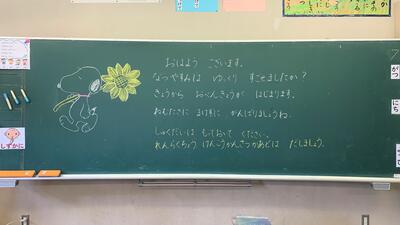 おはよう ございます。
なつやすみは ゆっくり すごせましたか?
きょうから おべんきょうが はじまります。
ねむたさに まけずに、がんばりましょうね。
しゅくだいは もっておいて ください。
れんらくちょう けんこうかんさつかあどは だしましょう。
しずかに
がつ
にち